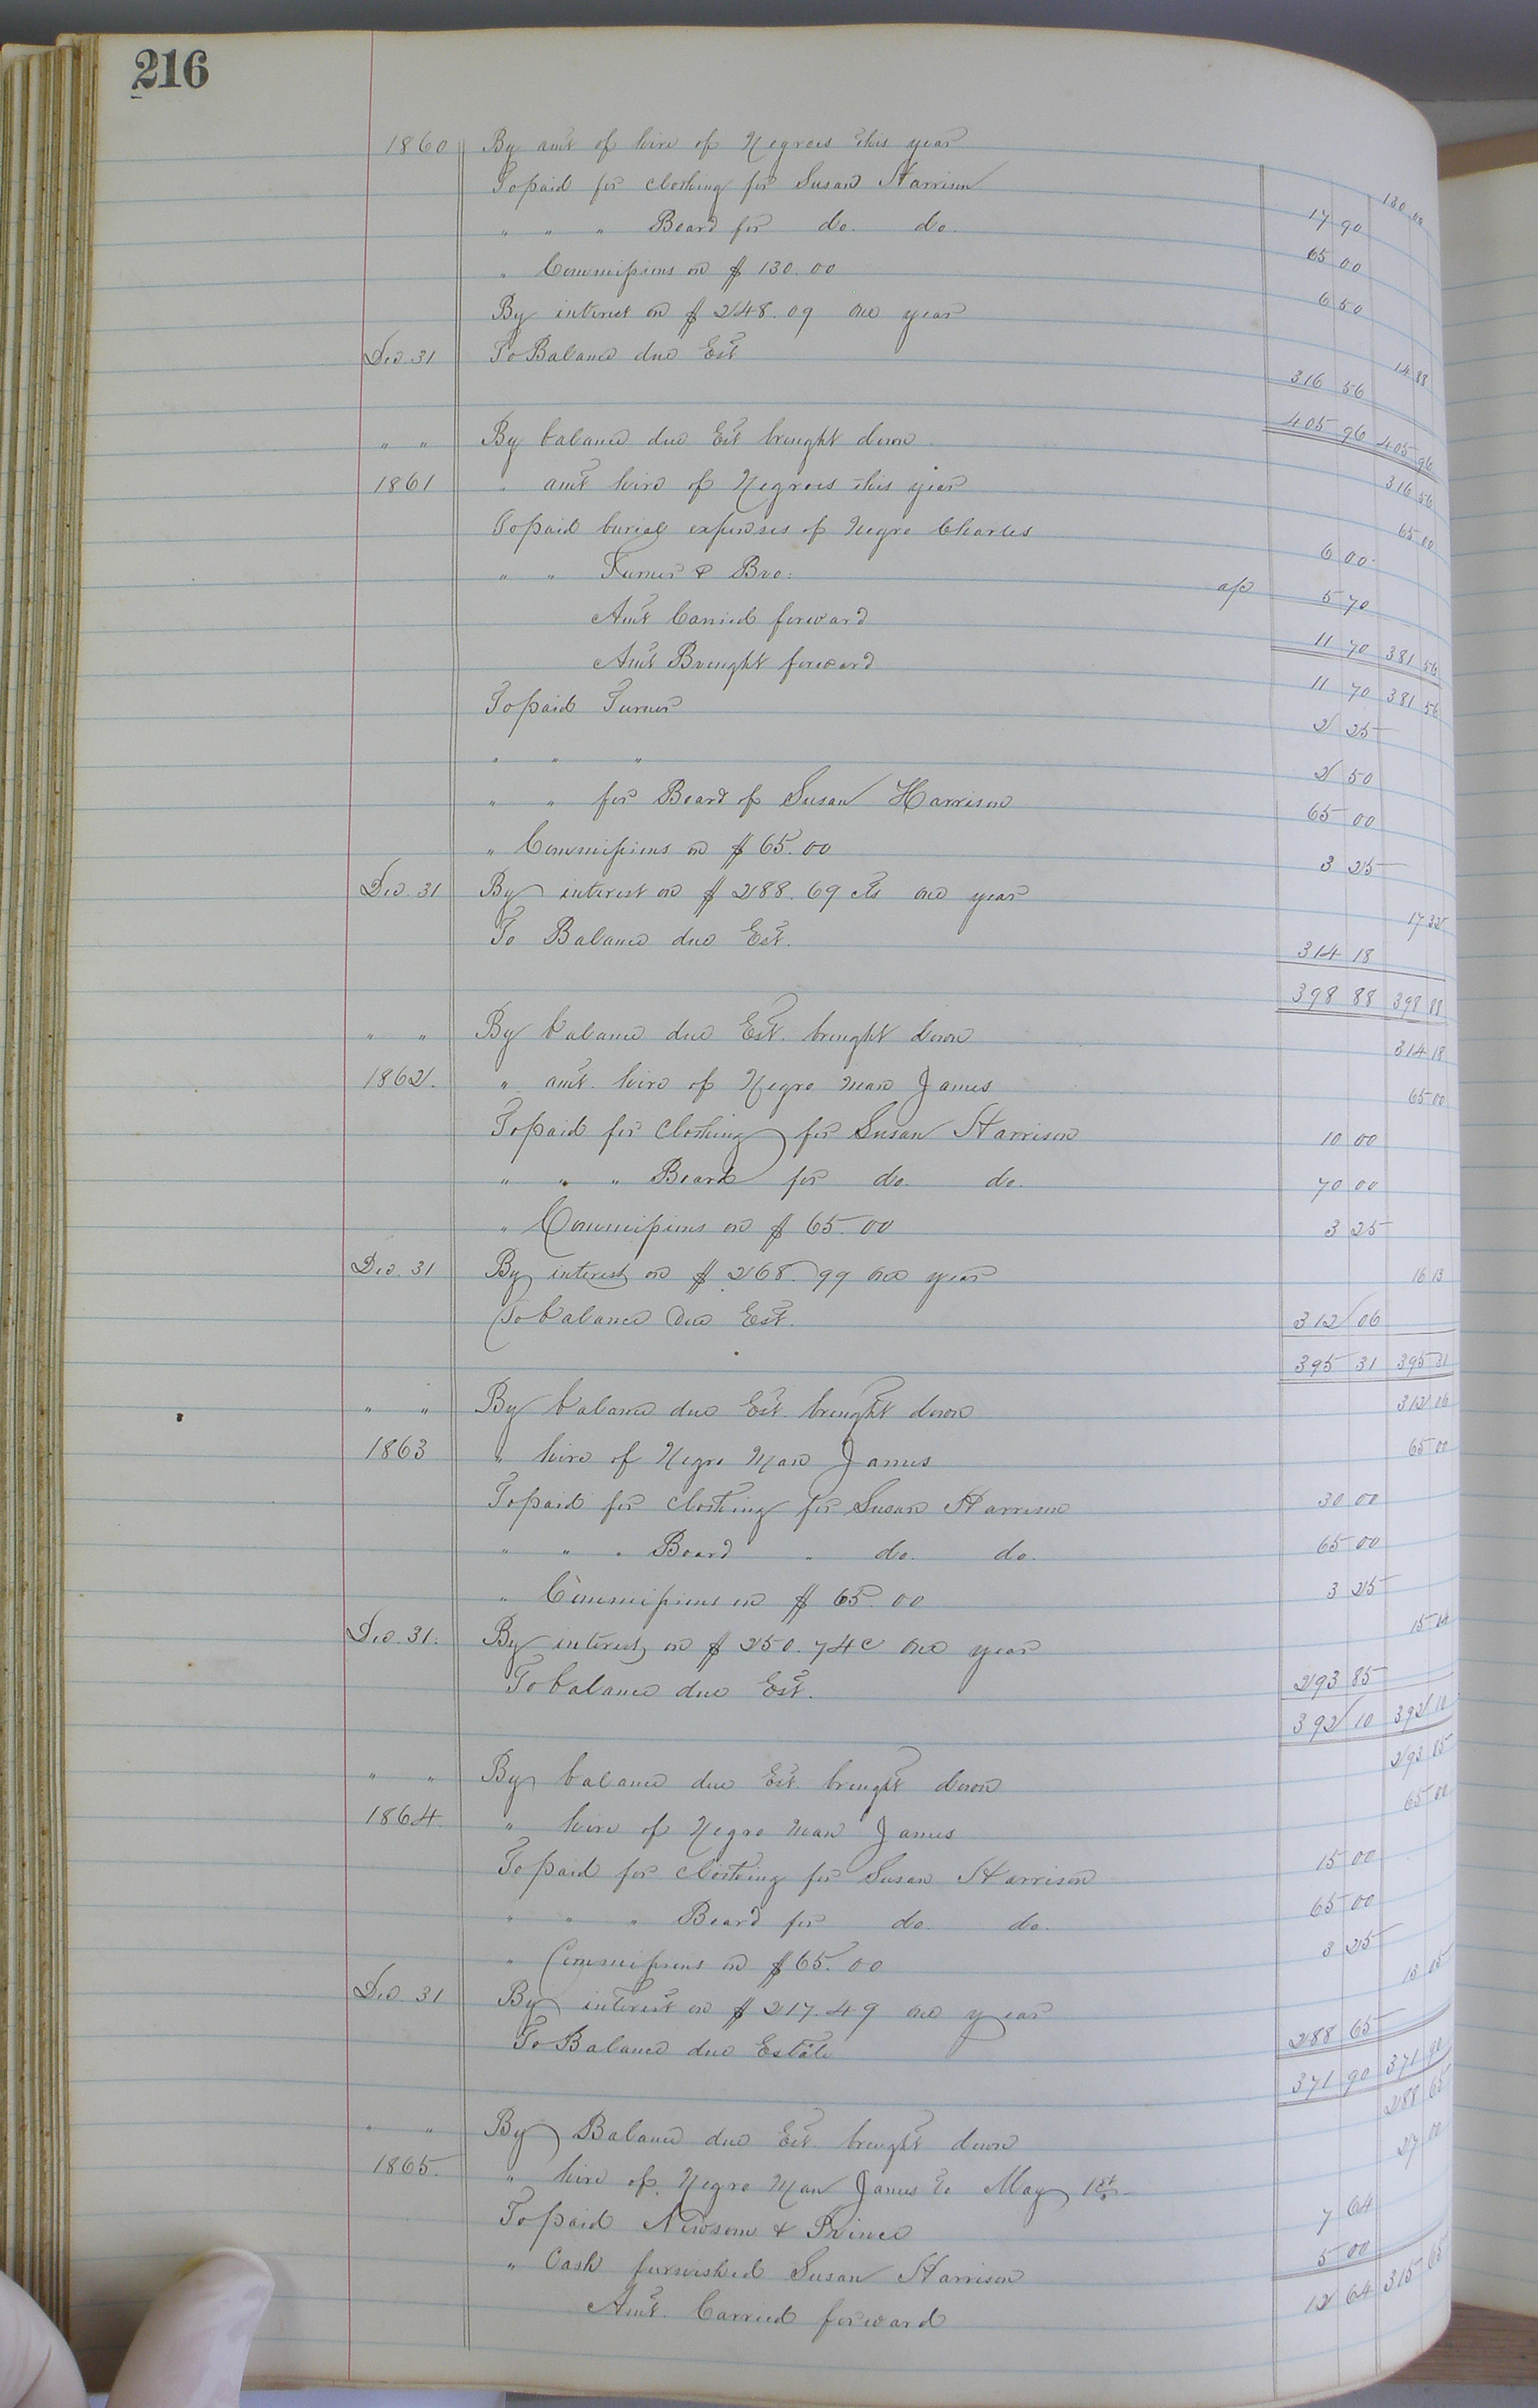 216
1860 By amt of hire of Negroes this year 130 00
To paid for clothing for Susan Harrison 17 90
" " " Board for do. do. 65 00
" Commissions on $ 130.00 6 50
By interest on $ 248.09 one year 14 88
Dec. 31 To Balance due Est 316 56
405 96 405 96
" " By balance due Est brought down 316 56
1861 " amt hire of Negroes this year 65 00
To paid burial expenses of Negro Charles 6 00
" " Turner & Bro: a/c 5 70
Amt Carried forward 11 70 381 56
Amt Brought forward 11 70 381 56
To paid Turner 2 25
" " " 2 50
" " for Board of Susan Harrison 65 00
" Commissions on $ 65.00 3 25
Dec. 31 By interest on $ 288.69 cts one year 17 32
To Balance due Est. 314 18
398 88 398 88
" " By balance due Est. brought down 314 18
1862. " amt. hire of Negro man James 65 00
To paid for Clothing for Susan Harrison 10 00
" " " Board for do. do. 70 00
" Commissions on $ 65.00 3 25
Dec. 31 By interest on $ 268.99 one year 16 13
To balance Due Est. 312 06
395 31 395 31
" " By balance due Est. brought down 312 06
1863 " hire of Negro Man James 65 00
To paid for clothing for Susan Harrison 30 00
" " " Board " do. do. 65 00
" Commissions on $ 65.00 3 25
Dec. 31. By interest on $ 250.74c one year 15 04
To balance due Est. 293 85
392 10 392 10
" " By balance due Est. brought down 293 85
1864. " hire of Negro man James 65 00
To paid for clothing for Susan Harrison 15 00
" " " Board for do. do. 65 00
" Commissions on $65.00 3 25
Dec. 31 By interest on $ 217.49 one year 13 05
To Balance due Estate 288 65
371 90 371 90
" " By Balance due Est. brought down 288 65
1865. " hire of Negro Man James to May 1st 27 00
To paid Newsom & Prince 7 64
" Cash furnished Susan Harrison 5 00
Amt. Carried forward 12 64 315 65